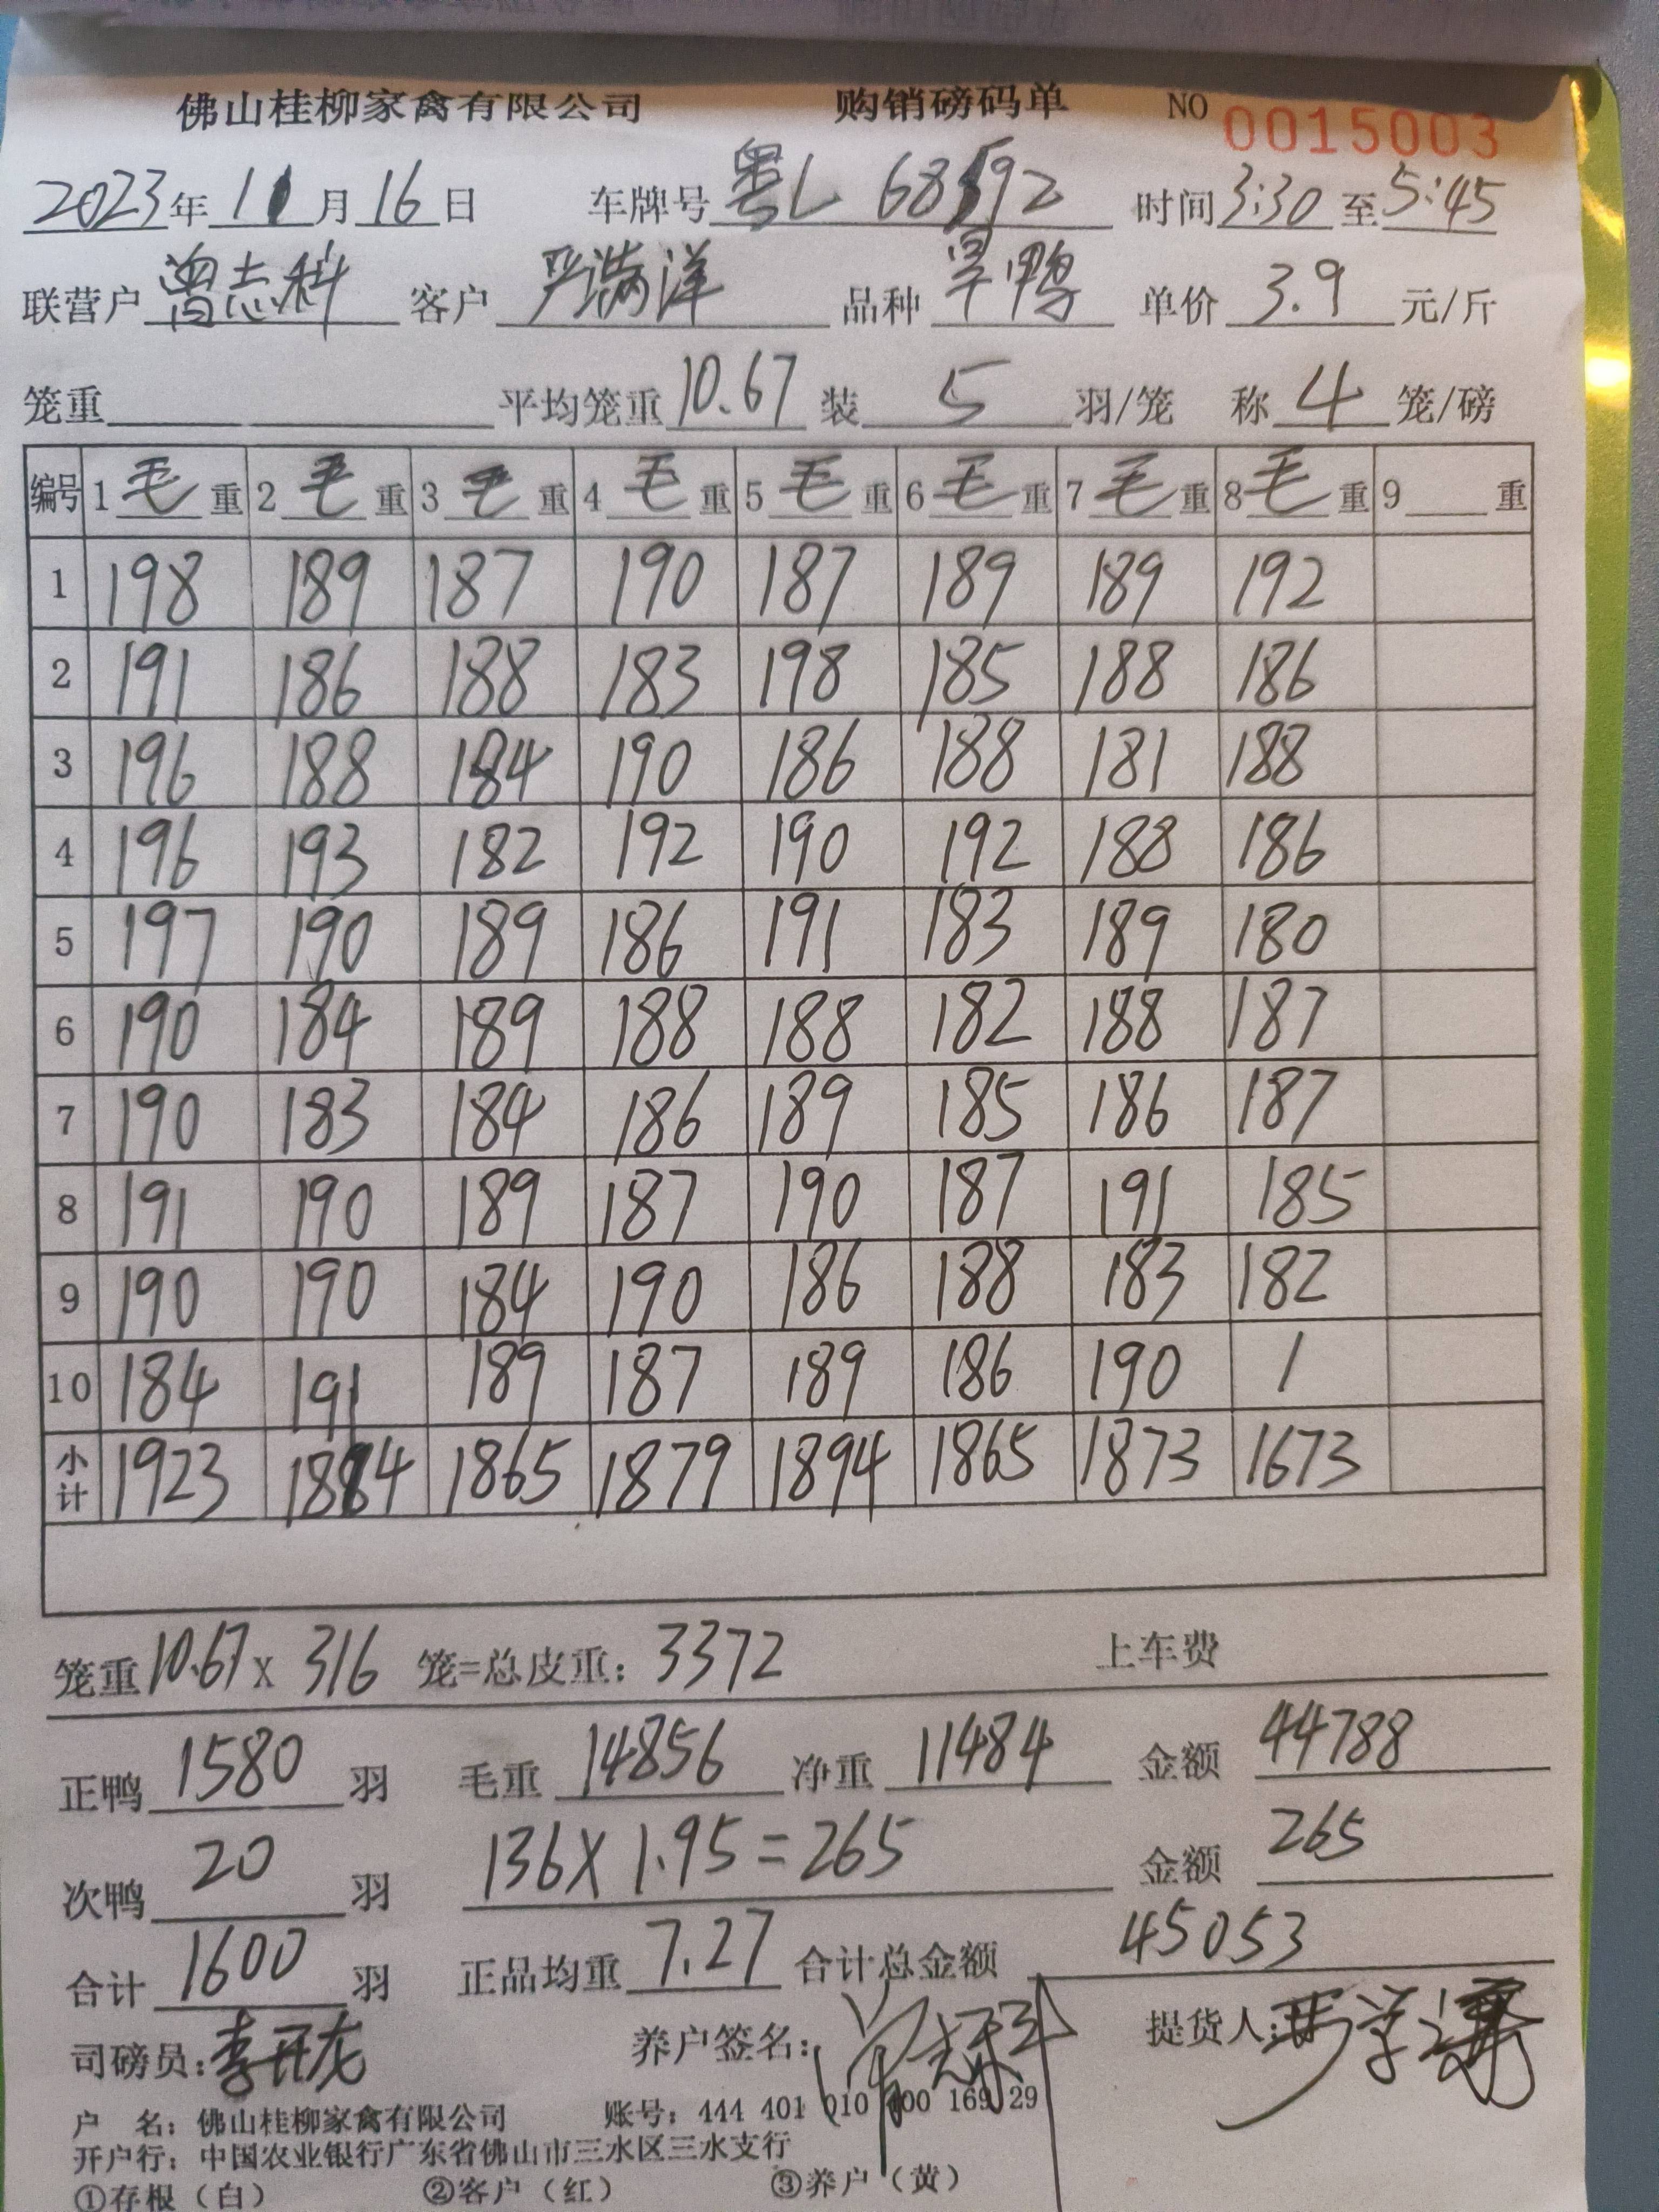 佛山桂柳家禽有限公司 购销磅码单 NO 0015003
2023年 11月16日 车牌号 粤L 68592 时间3:30至5:45
联营户 曾志科 客户 严满洋 品种 旱鸭 单价 3.9 元/斤
笼重 平均笼重10.67 装 5 羽/笼 称 4 笼/磅
编号 1毛重 2毛重 3毛重 4毛重 5毛重 6毛重 7毛重 8毛重 9 重
1 198 189 187 190 187 189 189 192
2 191 186 188 183 198 185 188 186
3 196 188 184 190 186 188 181 188
4 196 193 182 192 190 192 188 186
5 197 190 189 186 191 183 189 180
6 190 184 189 188 188 182 188 187
7 190 183 184 186 189 185 186 187
8 191 190 189 187 190 187 191 185
9 190 190 184 190 186 188 183 182
10 184 191 189 187 189 186 190 /
小计 1923 1884 1865 1879 1894 1865 1873 1673
笼重10.67X 316 笼=总皮重: 3372 上车费
正鸭 1580 羽 毛重 14856 净重 11484 金额 44788
次鸭 20 羽 136X1.95=265 金额 265
合计 1600 羽 正品均重 7.27 合计总金额 45053
司磅员:李开龙 养户签名: 提货人:
户 名: 佛山桂柳家禽有限公司 账号: 444 401 010 400 169 29
开户行: 中国农业银行广东省佛山市三水区三水支行
①存根（白） ②客户（红） ③养户（黄）